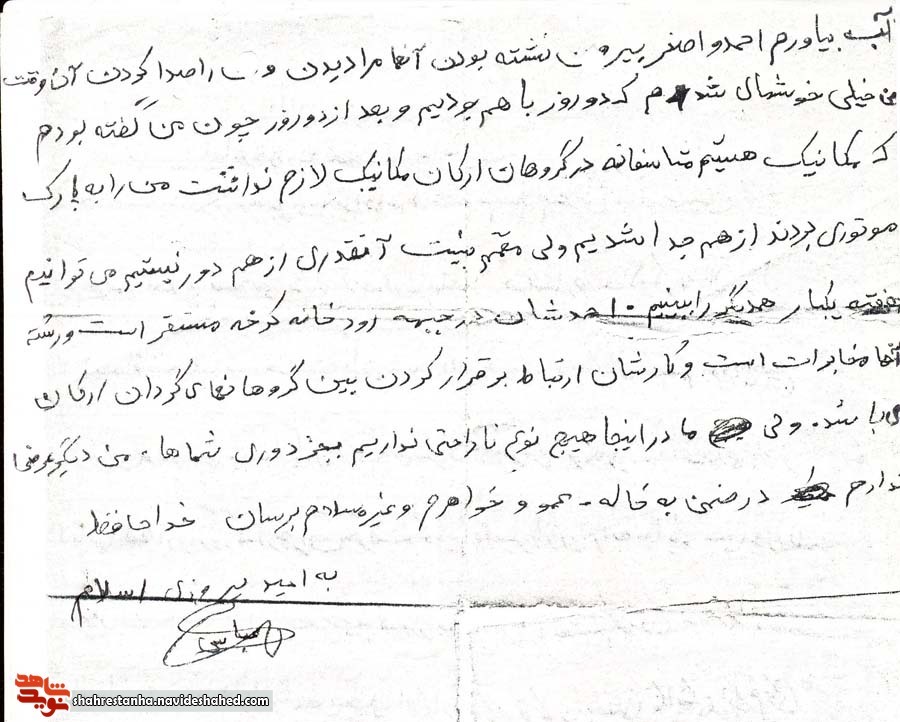 آب بیاورم احمد و اصغر بیرون نشته بودن آنها مرا دیدن و را صدا کردن آن وقت
من خیلی خوشحال شدم که دو روز با هم بودیم و بعد از دو روز چون من گفته بودم
که مکانیک هستیم متاسفانه در گروهان ارکان مکانیک لازم نداشت من را به پارک
موتوری بردند از هم جدا شدیم ولی مهم نیست آنقدری از هم دور نیستیم می توانیم
هفته یکبار همدیگر را ببینیم . احمدشان در جبهه رودخانه کرخه مستقر است و رسته
آنها مخابرات است و کارشان ارتباط برقرار کردن بین گروهانهای گردان ارکان
می باشد. ولی ما در اینجا هیچ نوع ناراحتی نداریم بجز دوری شماها . من دیگر عرضی
ندارم در ضمن به خاله - عمو و خواهرم و غیره سلام برسان خداحافظ
به امید پیروزی اسلام
عباسی
نوید شاهد
shahrestanha.navideshahed.com